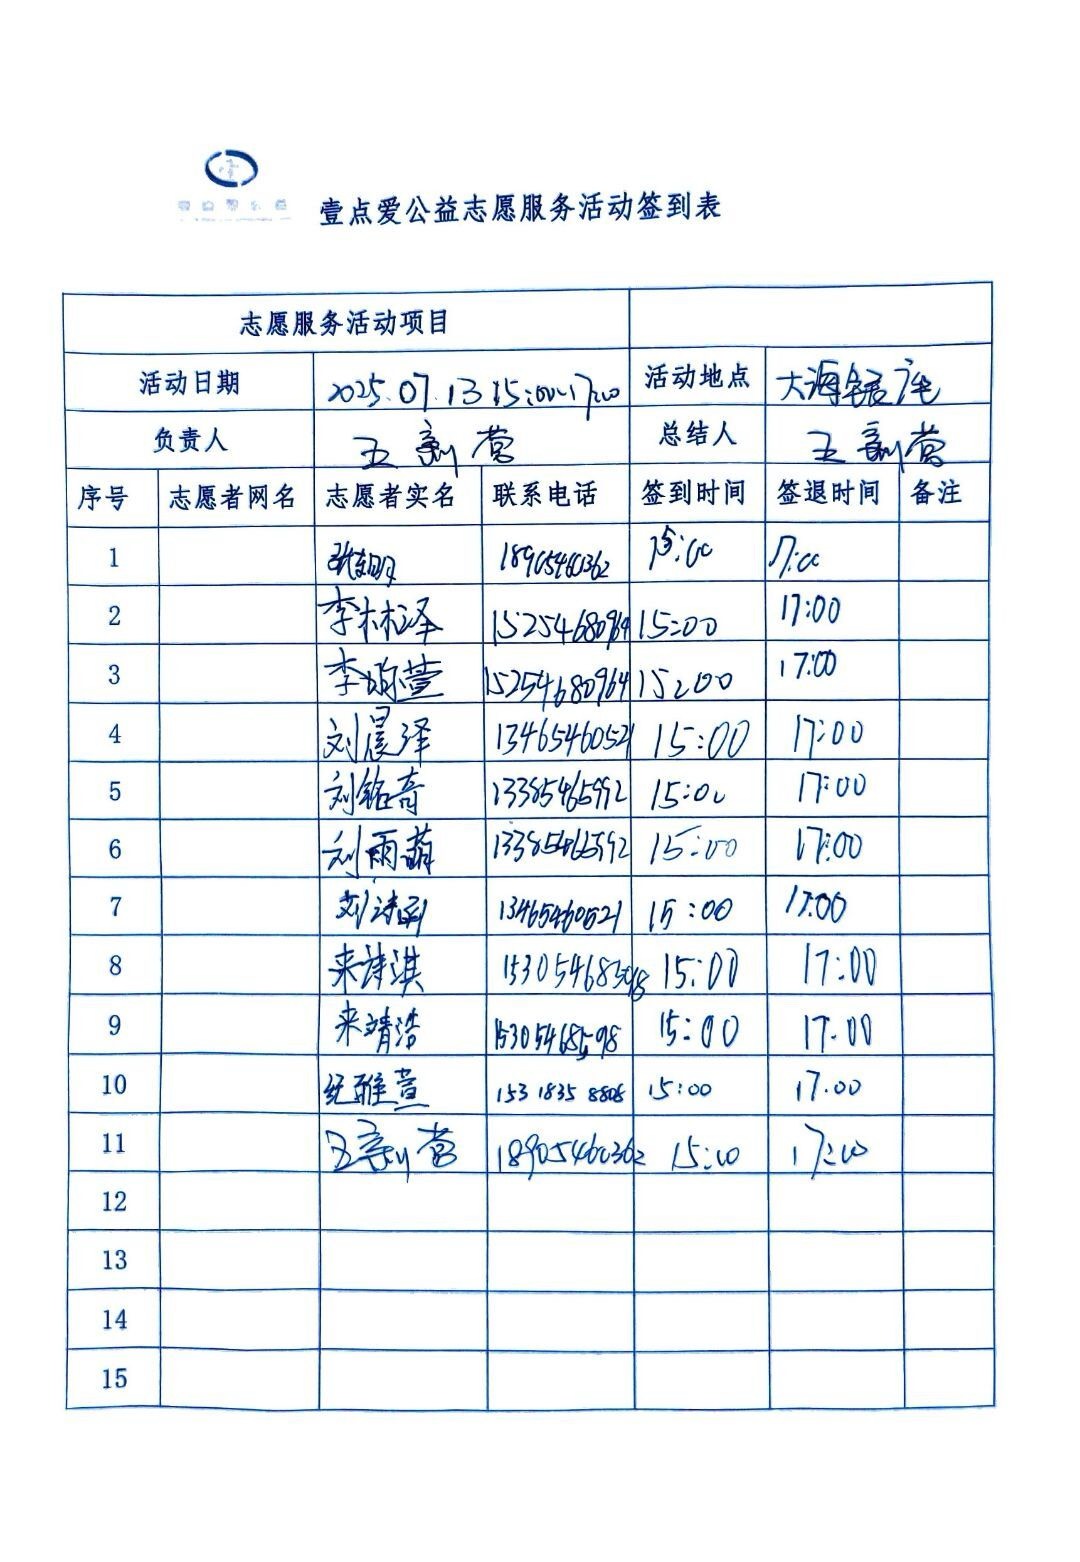 壹点爱公益志愿服务活动签到表
志愿服务活动项目
活动日期 2025.07.13 15:00-17:00 活动地点 大海
负责人 王新营 总结人 王新营
序号 志愿者网名 志愿者实名 联系电话 签到时间 签退时间 备注
1 18905460362 15:00 17:00
2 李林泽 15254680964 15:00 17:00
3 李 萱 15254680964 15:00 17:00
4 刘晨泽 13465460521 15:00 17:00
5 刘铭奇 13385465992 15:00 17:00
6 刘雨萌 13385465992 15:00 17:00
7 刘诗 13465460521 15:00 17:00
8 来诗淇 15:00 17:00
9 来靖浩 15:00 17.00
10 纪雅萱 153 1835 8808 15:00 17.00
11 王新营 18905460362 15:00 17:00
12
13
14
15